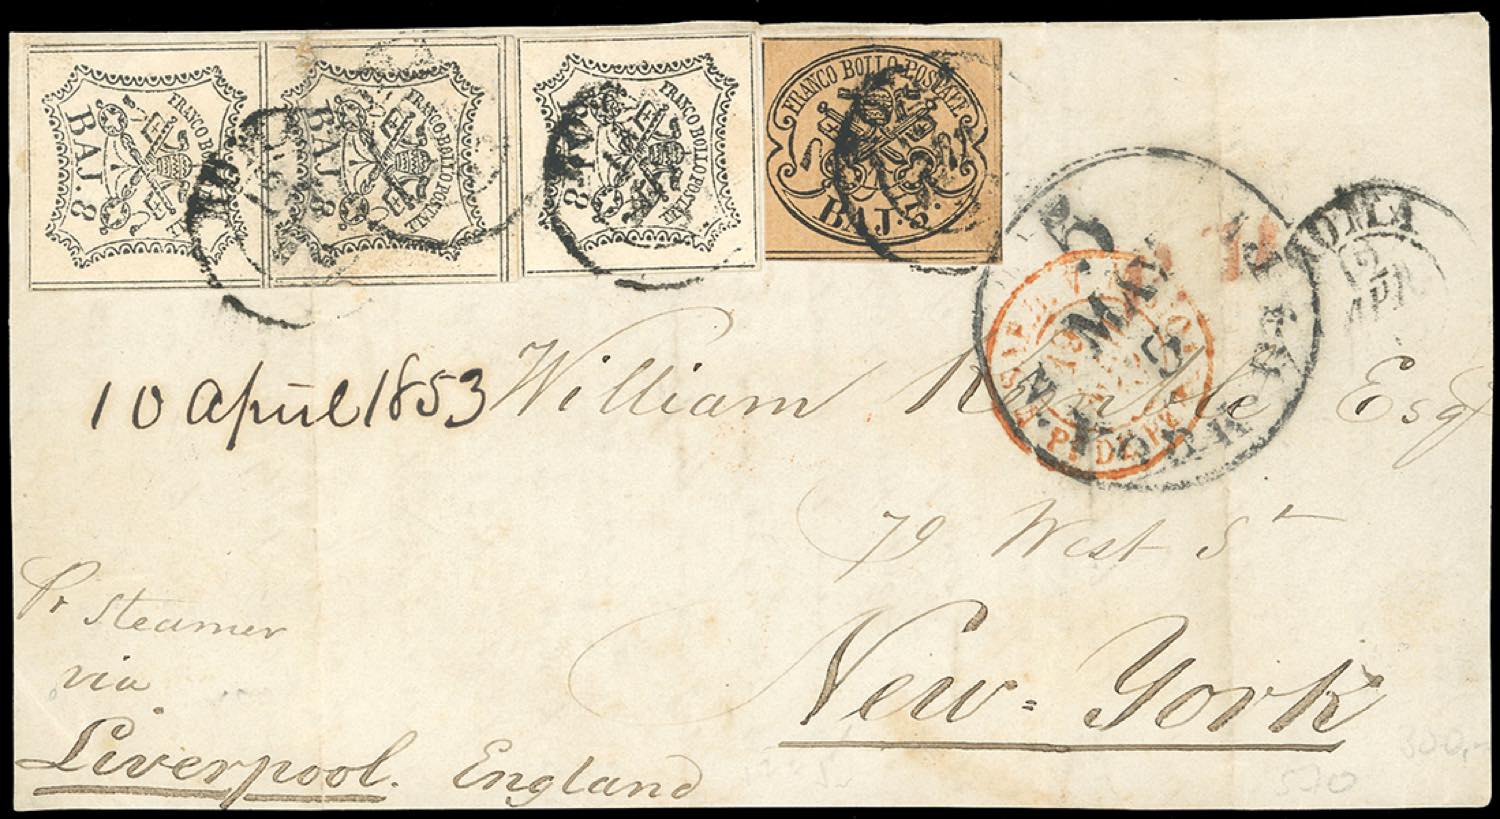 FRANCO BOLLO POSTALE
BAJ. 8
FRANCO BOLLO POSTALE
BAJ. 8
FRANCO BOLLO POSTALE
BAJ. 8
FRANCO BOLLO POSTALE
BAJ. 3.
ROMA
12
APR
5
N. YORK
MAY
5
10 april 1853
William Esqr
79 West St
New=York
Pr Steamer
via
Liverpool. England
300,-
570